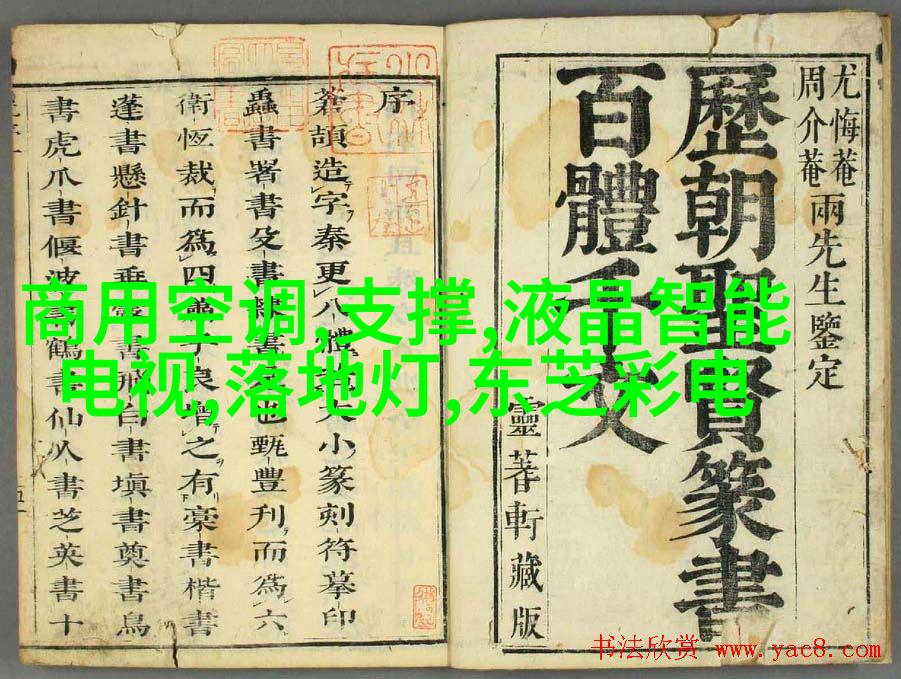 尤悔菴
周介菴
兩先生鑒定
歷朝聖賢篆書
百體千文
靈蓍軒藏版
序
蒼頡造字秦更八體 大小篆刻符摹印
蟲書署書殳書隸書 也甄豐刋而爲六
衛恆裁而爲四 之有豪書楷書
蓬書懸針書垂 書飛白書塡書奠書鳥
書虎爪書偃波 鶴書仙人書芝英書十
商用空调,支撑,液晶智能
电视,落地灯,东芝彩电
书法欣赏 www.yac8.com